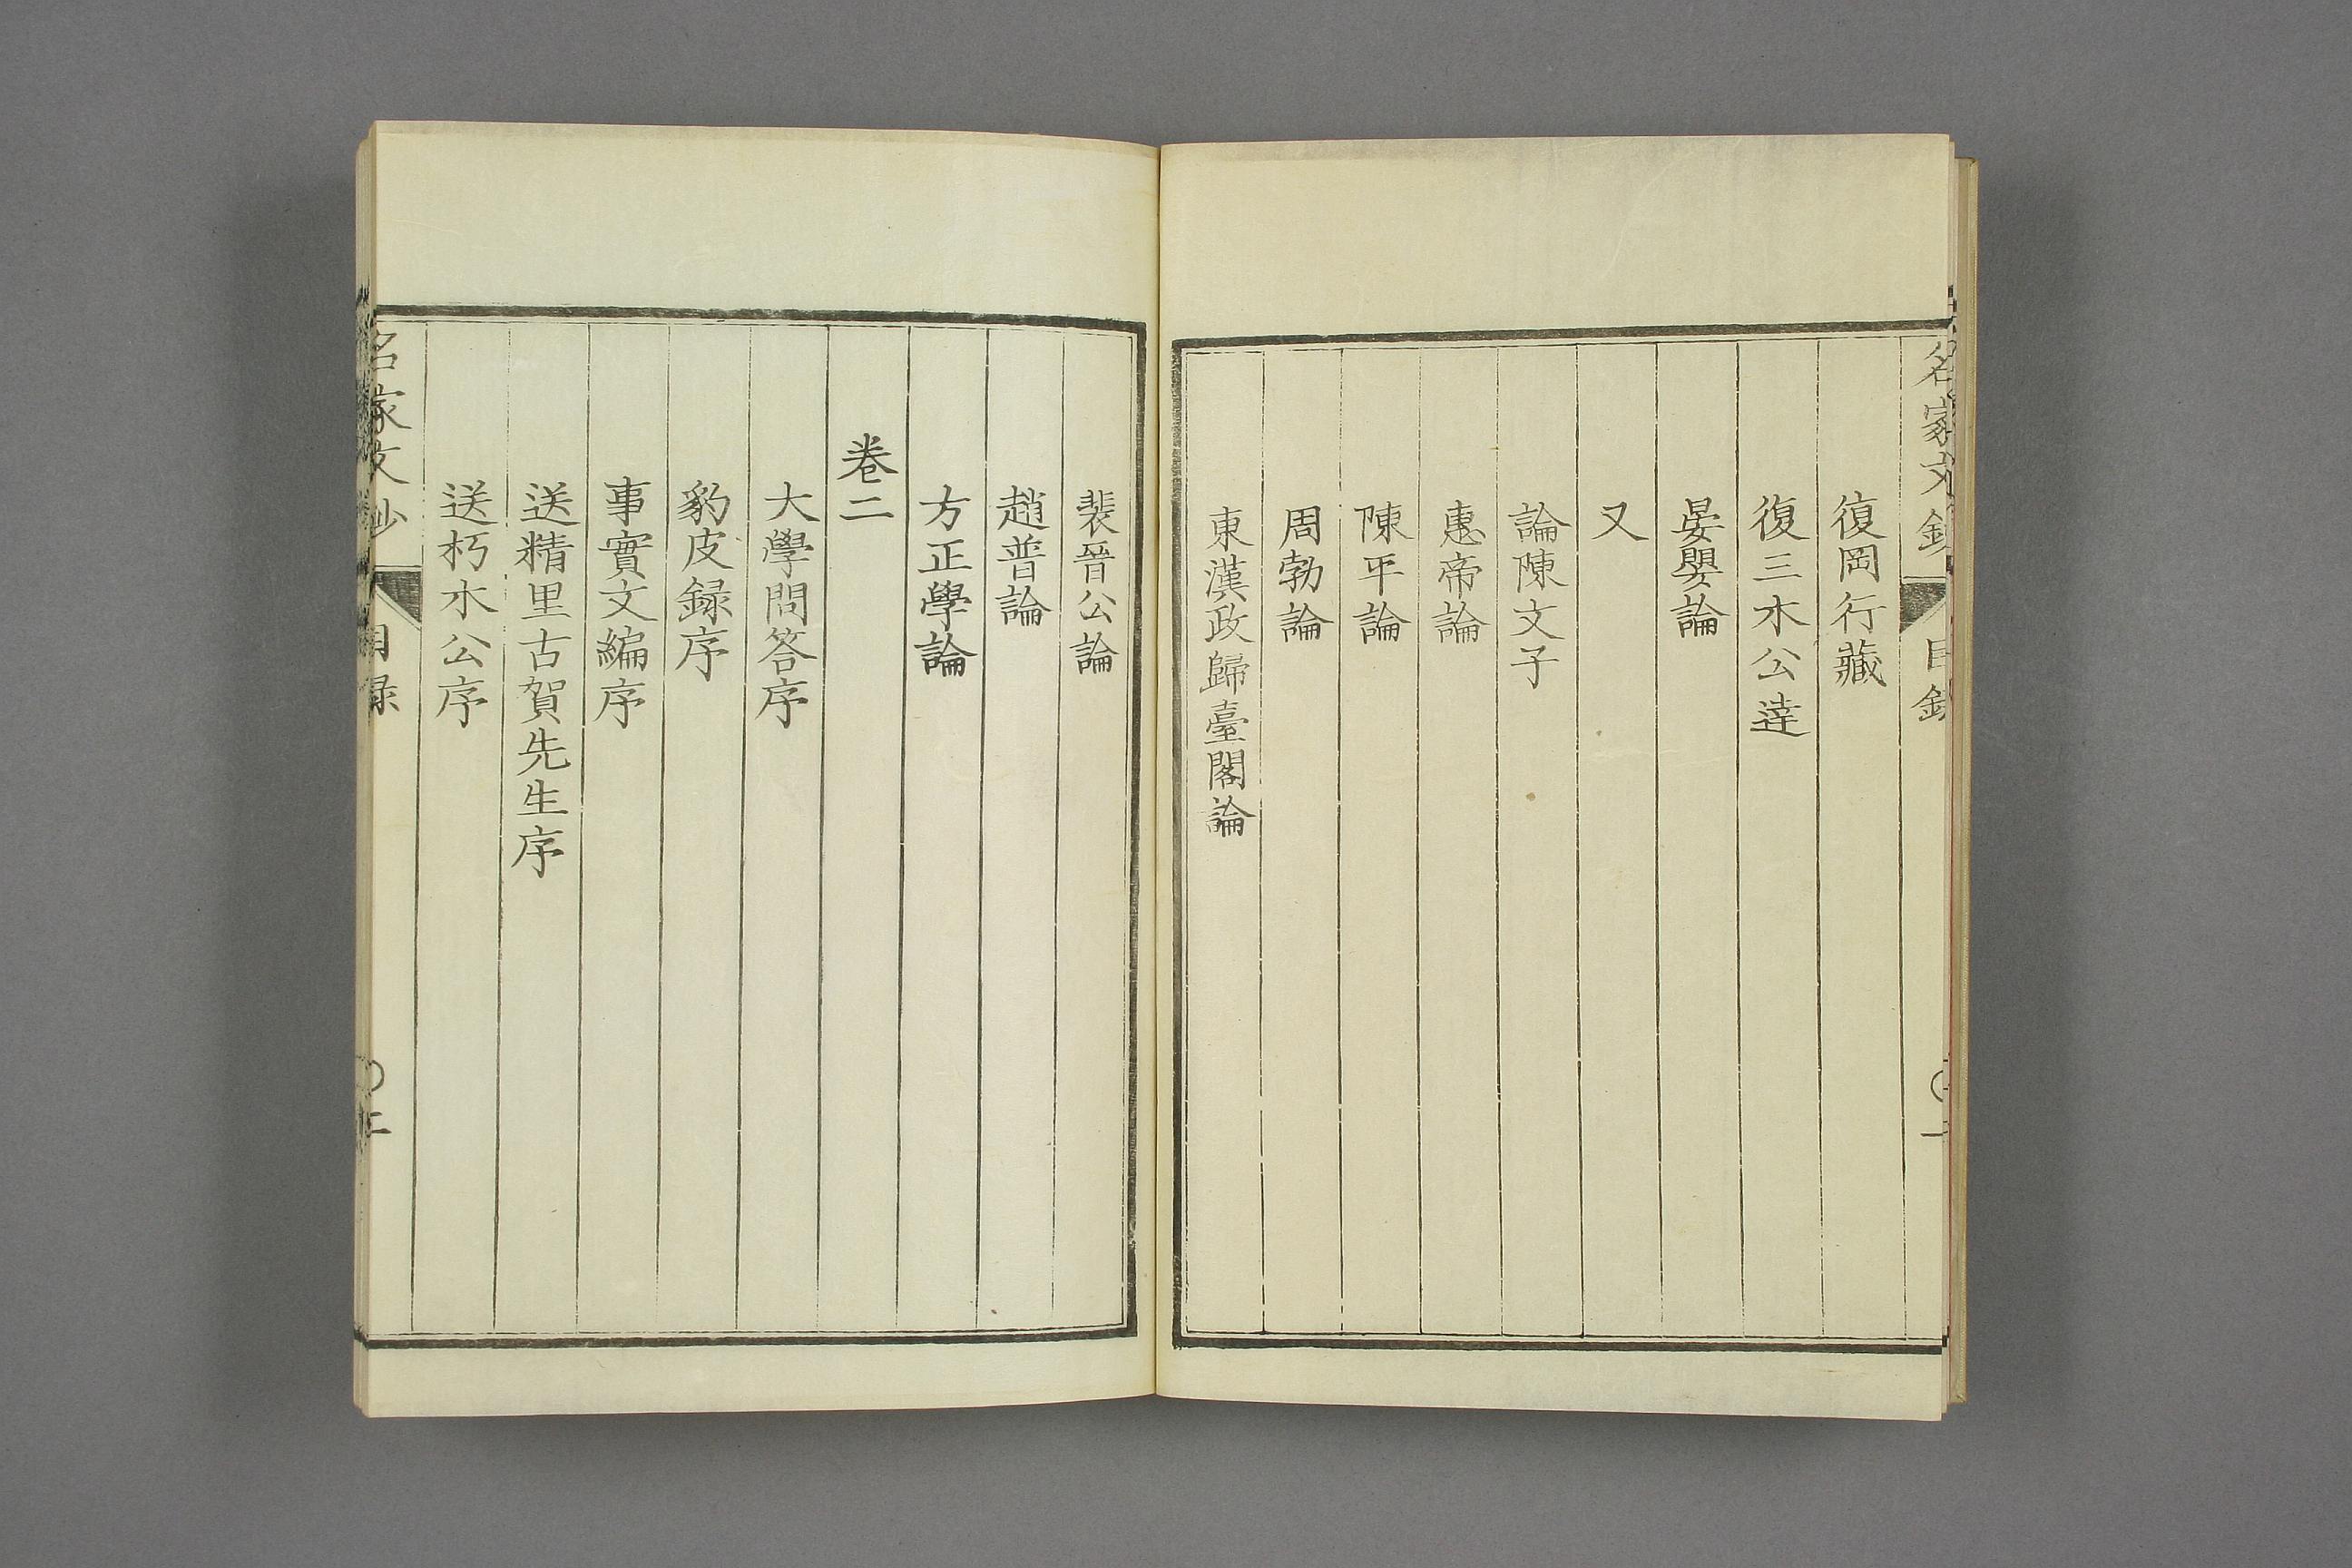 名家文鈔 目錄 一
復岡行藏
復三木公逹
晏嬰論
又
論陳文子
惠帝論
陳平論
周勃論
東漢政歸臺閣論
裴晉公論
趙普論
方正學論
卷二
大學問答序
豹皮録序
事實文編序
送精里古賀先生序
送朽木公序
名家文鈔 目録 二